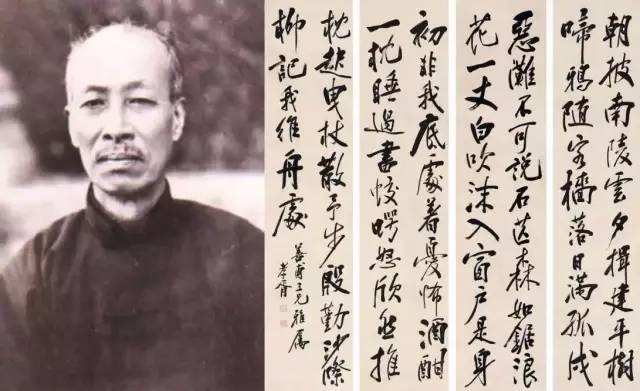 朝披南陵雲夕揖建平樹
啼鴉隨客檣落日滿孤戍
惡灘不可說石芒森如鋸浪
花一丈白吹沫入窗戶是身
初非我底處着憂怖酒酣
一枕睡過盡蛟鱷怒欣然推
枕起曳杖散予步殷勤沙際
柳記我維舟處
仁兄雅屬
孝胥